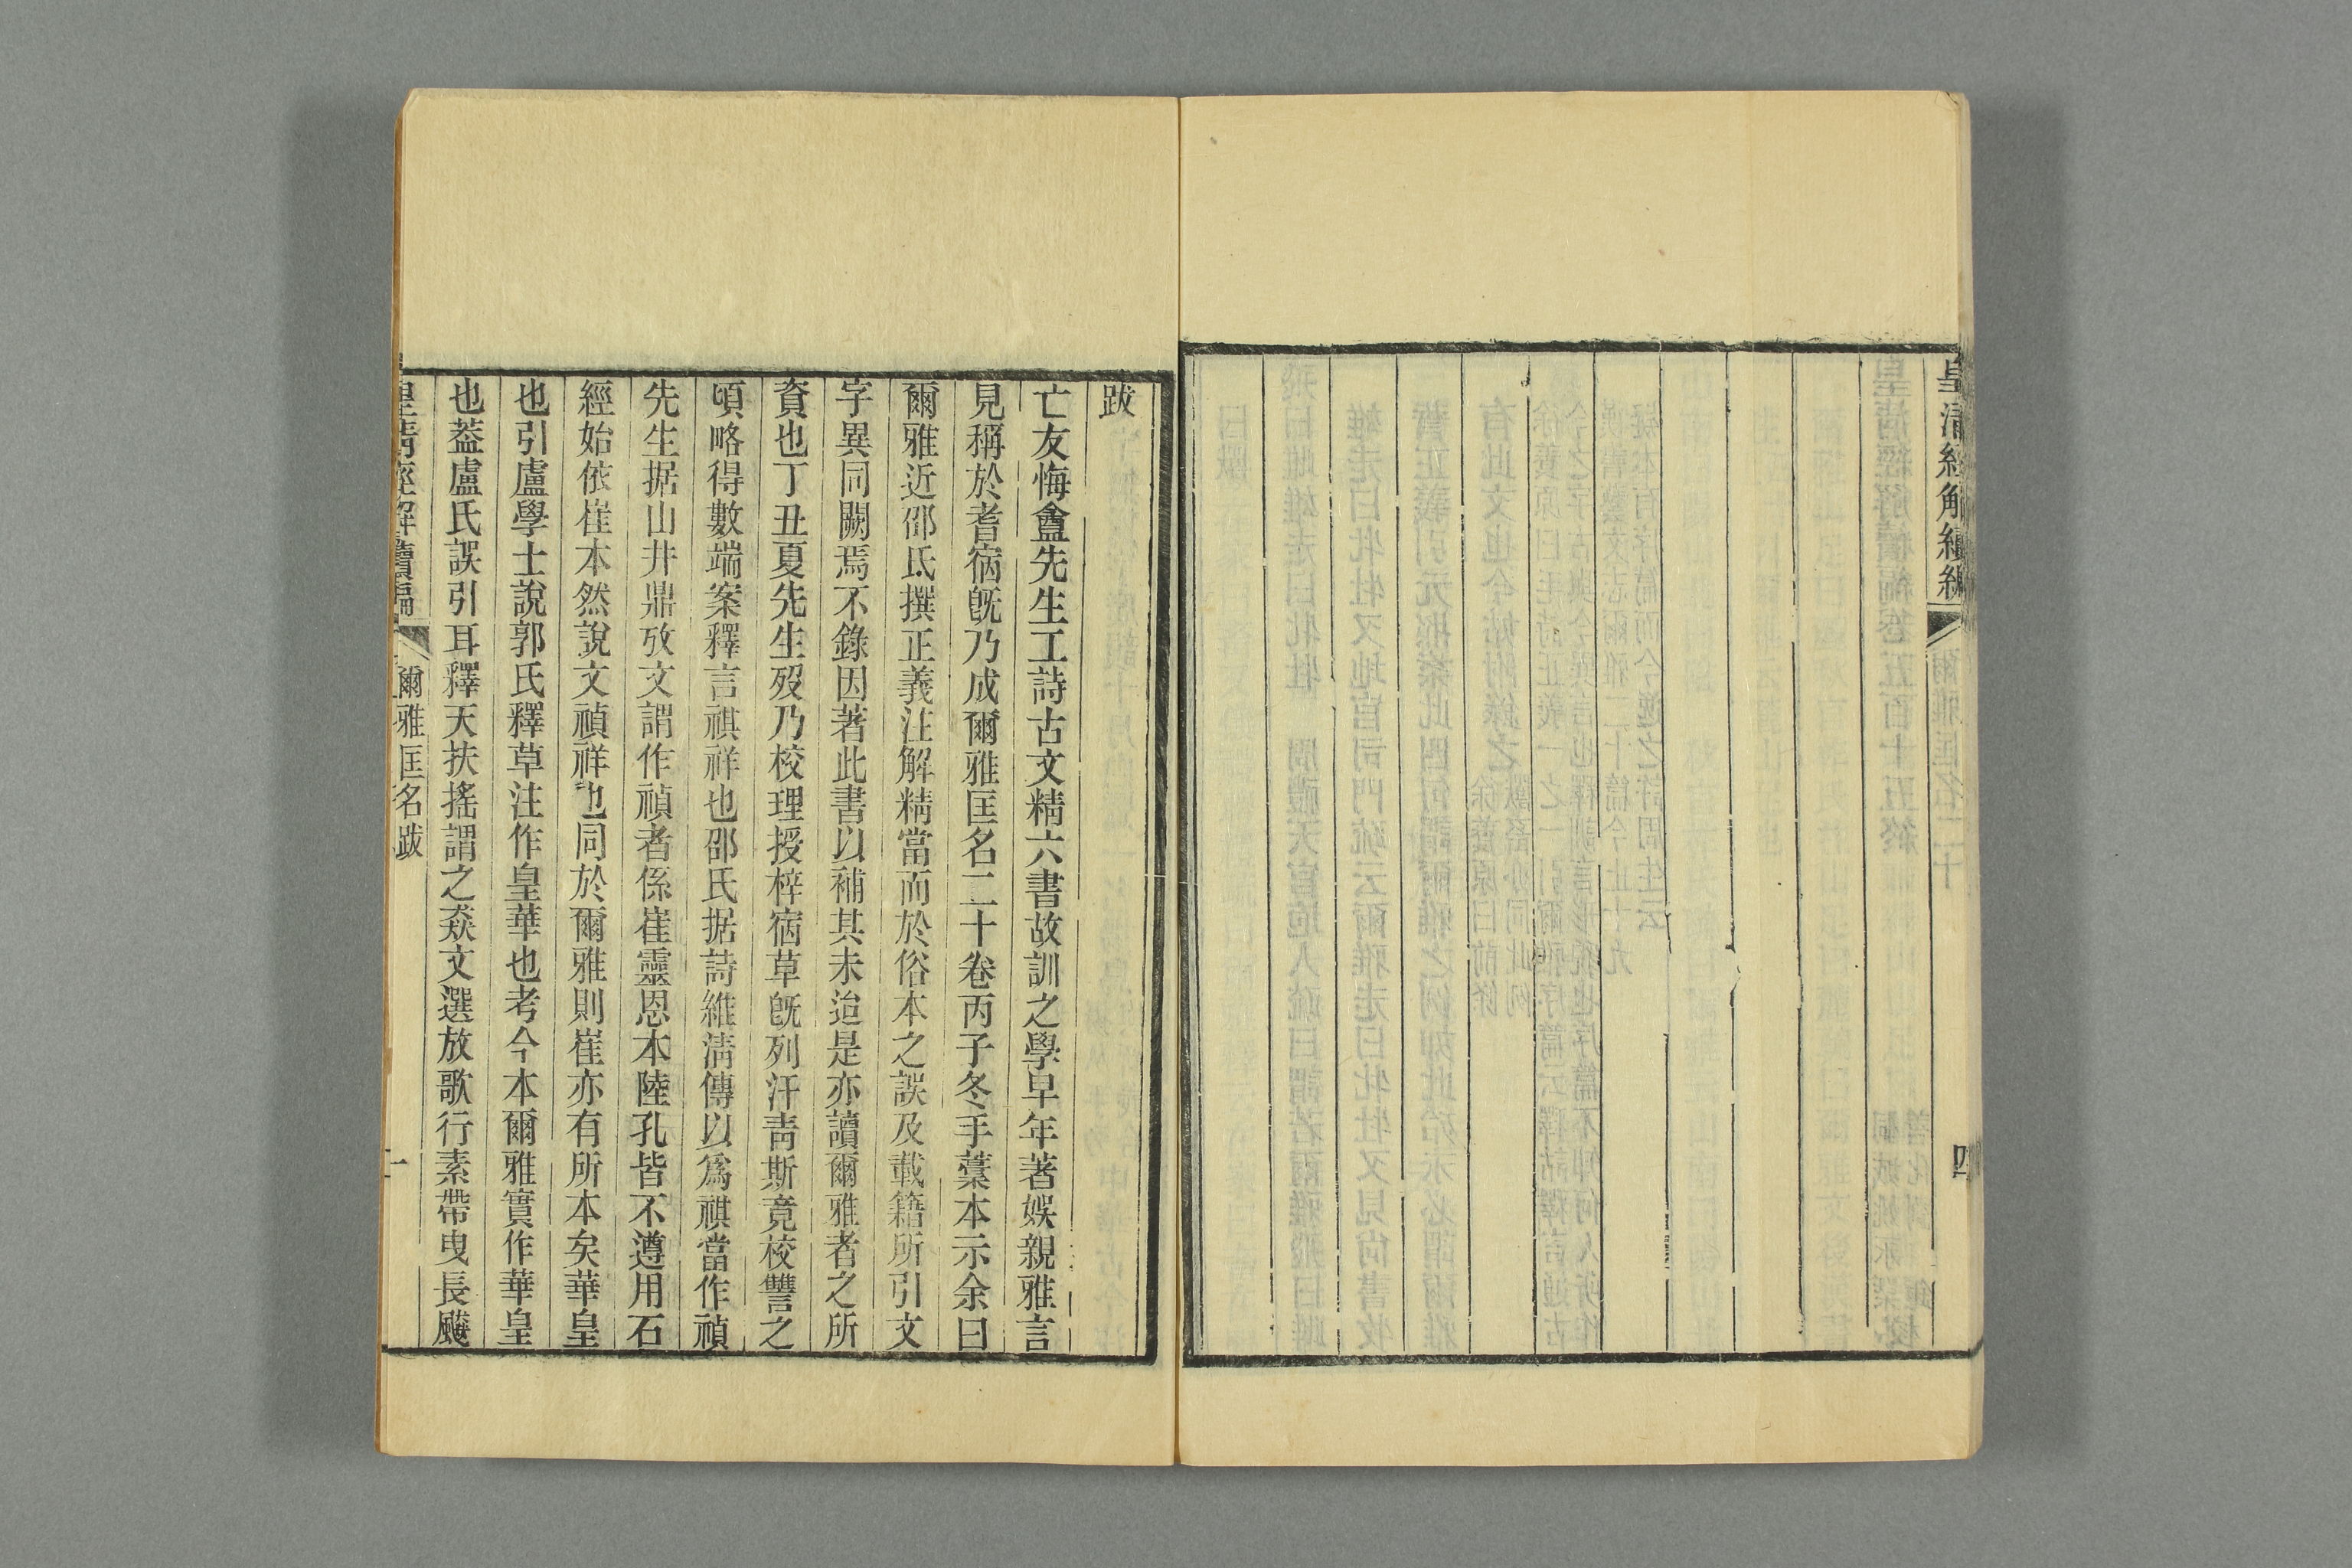 皇清經解續編
四
跋
亡友悔盦先生工詩古文精六書故訓之學早年著娛親雅言
見稱於耆宿旣乃成爾雅匡名二十卷丙子冬手藁本示余曰
爾雅近邵氏撰正義注解精當而於俗本之誤及載籍所引文
字異同闕焉不錄因著此書以補其未迨是亦讀爾雅者之所
資也丁丑夏先生歿乃校理授梓宿草旣列汗靑斯竟校讐之
頃略得數端案釋言祺祥也邵氏据詩維淸傳以爲祺當作禎
先生据山井鼎攷文謂作禎者係崔靈恩本陸孔皆不遵用石
經始依崔本然說文禎祥也同於爾雅則崔亦有所本矣華皇
也引盧學士說郭氏釋草注作皇華也考今本爾雅實作華皇
也葢盧氏誤引耳釋天扶搖謂之猋文選放歌行素帶曳長飈
皇清經解續編
爾雅匡名跋
一